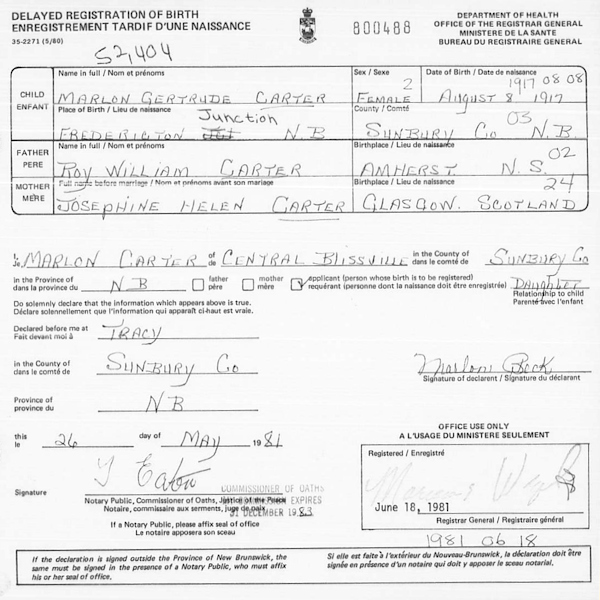 DELAYED REGISTRATION OF BIRTH
ENREGISTREMENT TARDIF D'UNE NAISSANCE
35-2271 (5/80)
800488
DEPARTMENT OF HEALTH
OFFICE OF THE REGISTRAR GENERAL
MINISTERE DE LA SANTE
BUREAU DU REGISTRAIRE GENERAL
52,404
CHILD
ENFANT
Name in full / Nom et prénoms
MARLON GERTRUDE CARTER
Sex / Sexe
2
FEMALE
Date of Birth / Date de naissance
1917 08 08
AUGUST 8 1917
Place of Birth / Lieu de naissance
Junction
FREDERICTON N.B
County / Comté
03
SUNBURY CO N.B.
FATHER
PERE
Name in full / Nom et prénoms
ROY WILLIAM CARTER
Birthplace / Lieu de naissance
02
AMHERST N.S.
MOTHER
MÈRE
Full name before marriage / Nom et prénoms avant son mariage
JOSEPHINE HELEN CARTER
Birthplace / Lieu de naissance
24
GLASGOW. SCOTLAND
I,
Je MARLON CARTER of
de CENTRAL BLISSVILLE in the County of
dans le comté de SUNBURY CO
in the Province of
dans la province du NB
father
père
mother
mère
applicant (person whose birth is to be registered)
requérant (personne dont la naissance doit être enregistrée)
DAUGHTER
Relationship to child
Parenté avec l'enfant
Do solemnly declare that the information which appears above is true.
Déclare solennellement que l'information qui apparaît ci-haut est vraie.
Declared before me at
Fait devant moi à TRACY
in the County of
dans le comté de SUNBURY CO
Marlon Bock
Signature of declarent / Signature du déclarant
Province of
province du NB
this
le 26 day of
de MAY 1981
Signature Y Eaton
COMMISSIONER OF OATHS
EXPIRES
31 DECEMBER 1983
Notary Public, Commissioner of Oaths, Justice of the Peace
Notaire, commissaire aux serments, juge de paix
If a Notary Public, please affix seal of office
Le notaire apposera son sceau
OFFICE USE ONLY
A L'USAGE DU MINISTERE SEULEMENT
Registered / Enregistré
June 18, 1981
Registrar General / Registraire général
1981 06 18
If the declaration is signed outside the Province of New Brunswick, the same must be signed in the presence of a Notary Public, who must affix his or her seal of office.
Si elle est faite à l'extérieur du Nouveau-Brunswick, la déclaration doit être signée en présence d'un notaire qui doit y apposer le sceau notarial.